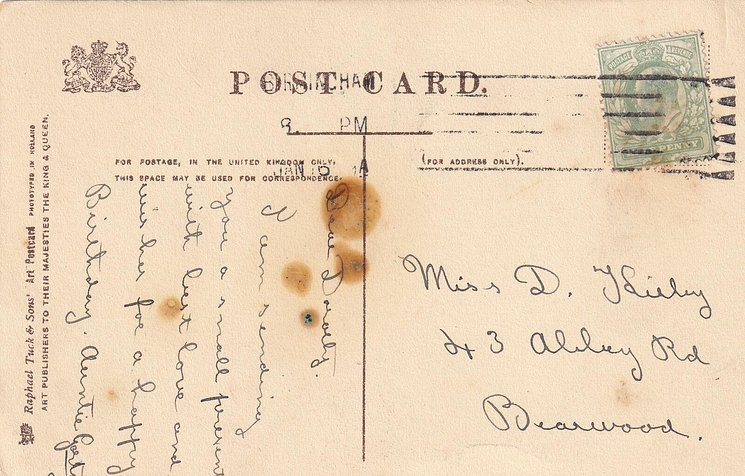 POST CARD.
BIRMINGHAM
8. PM
JAN 16
POSTAGE & REVENUE
PENNY
FOR POSTAGE, IN THE UNITED KINGDOM ONLY,
THIS SPACE MAY BE USED FOR CORRESPONDENCE.
(FOR ADDRESS ONLY).
Dear Dorothy.
I am sending
you a small present
with best love and
wishes for a happy
Birthday. Auntie
Miss D.
43 Abbey Rd
Bearwood.
Raphael Tuck & Sons' Art Postcard PHOTOTYPED IN HOLLAND
ART PUBLISHERS TO THEIR MAJESTIES THE KING & QUEEN.